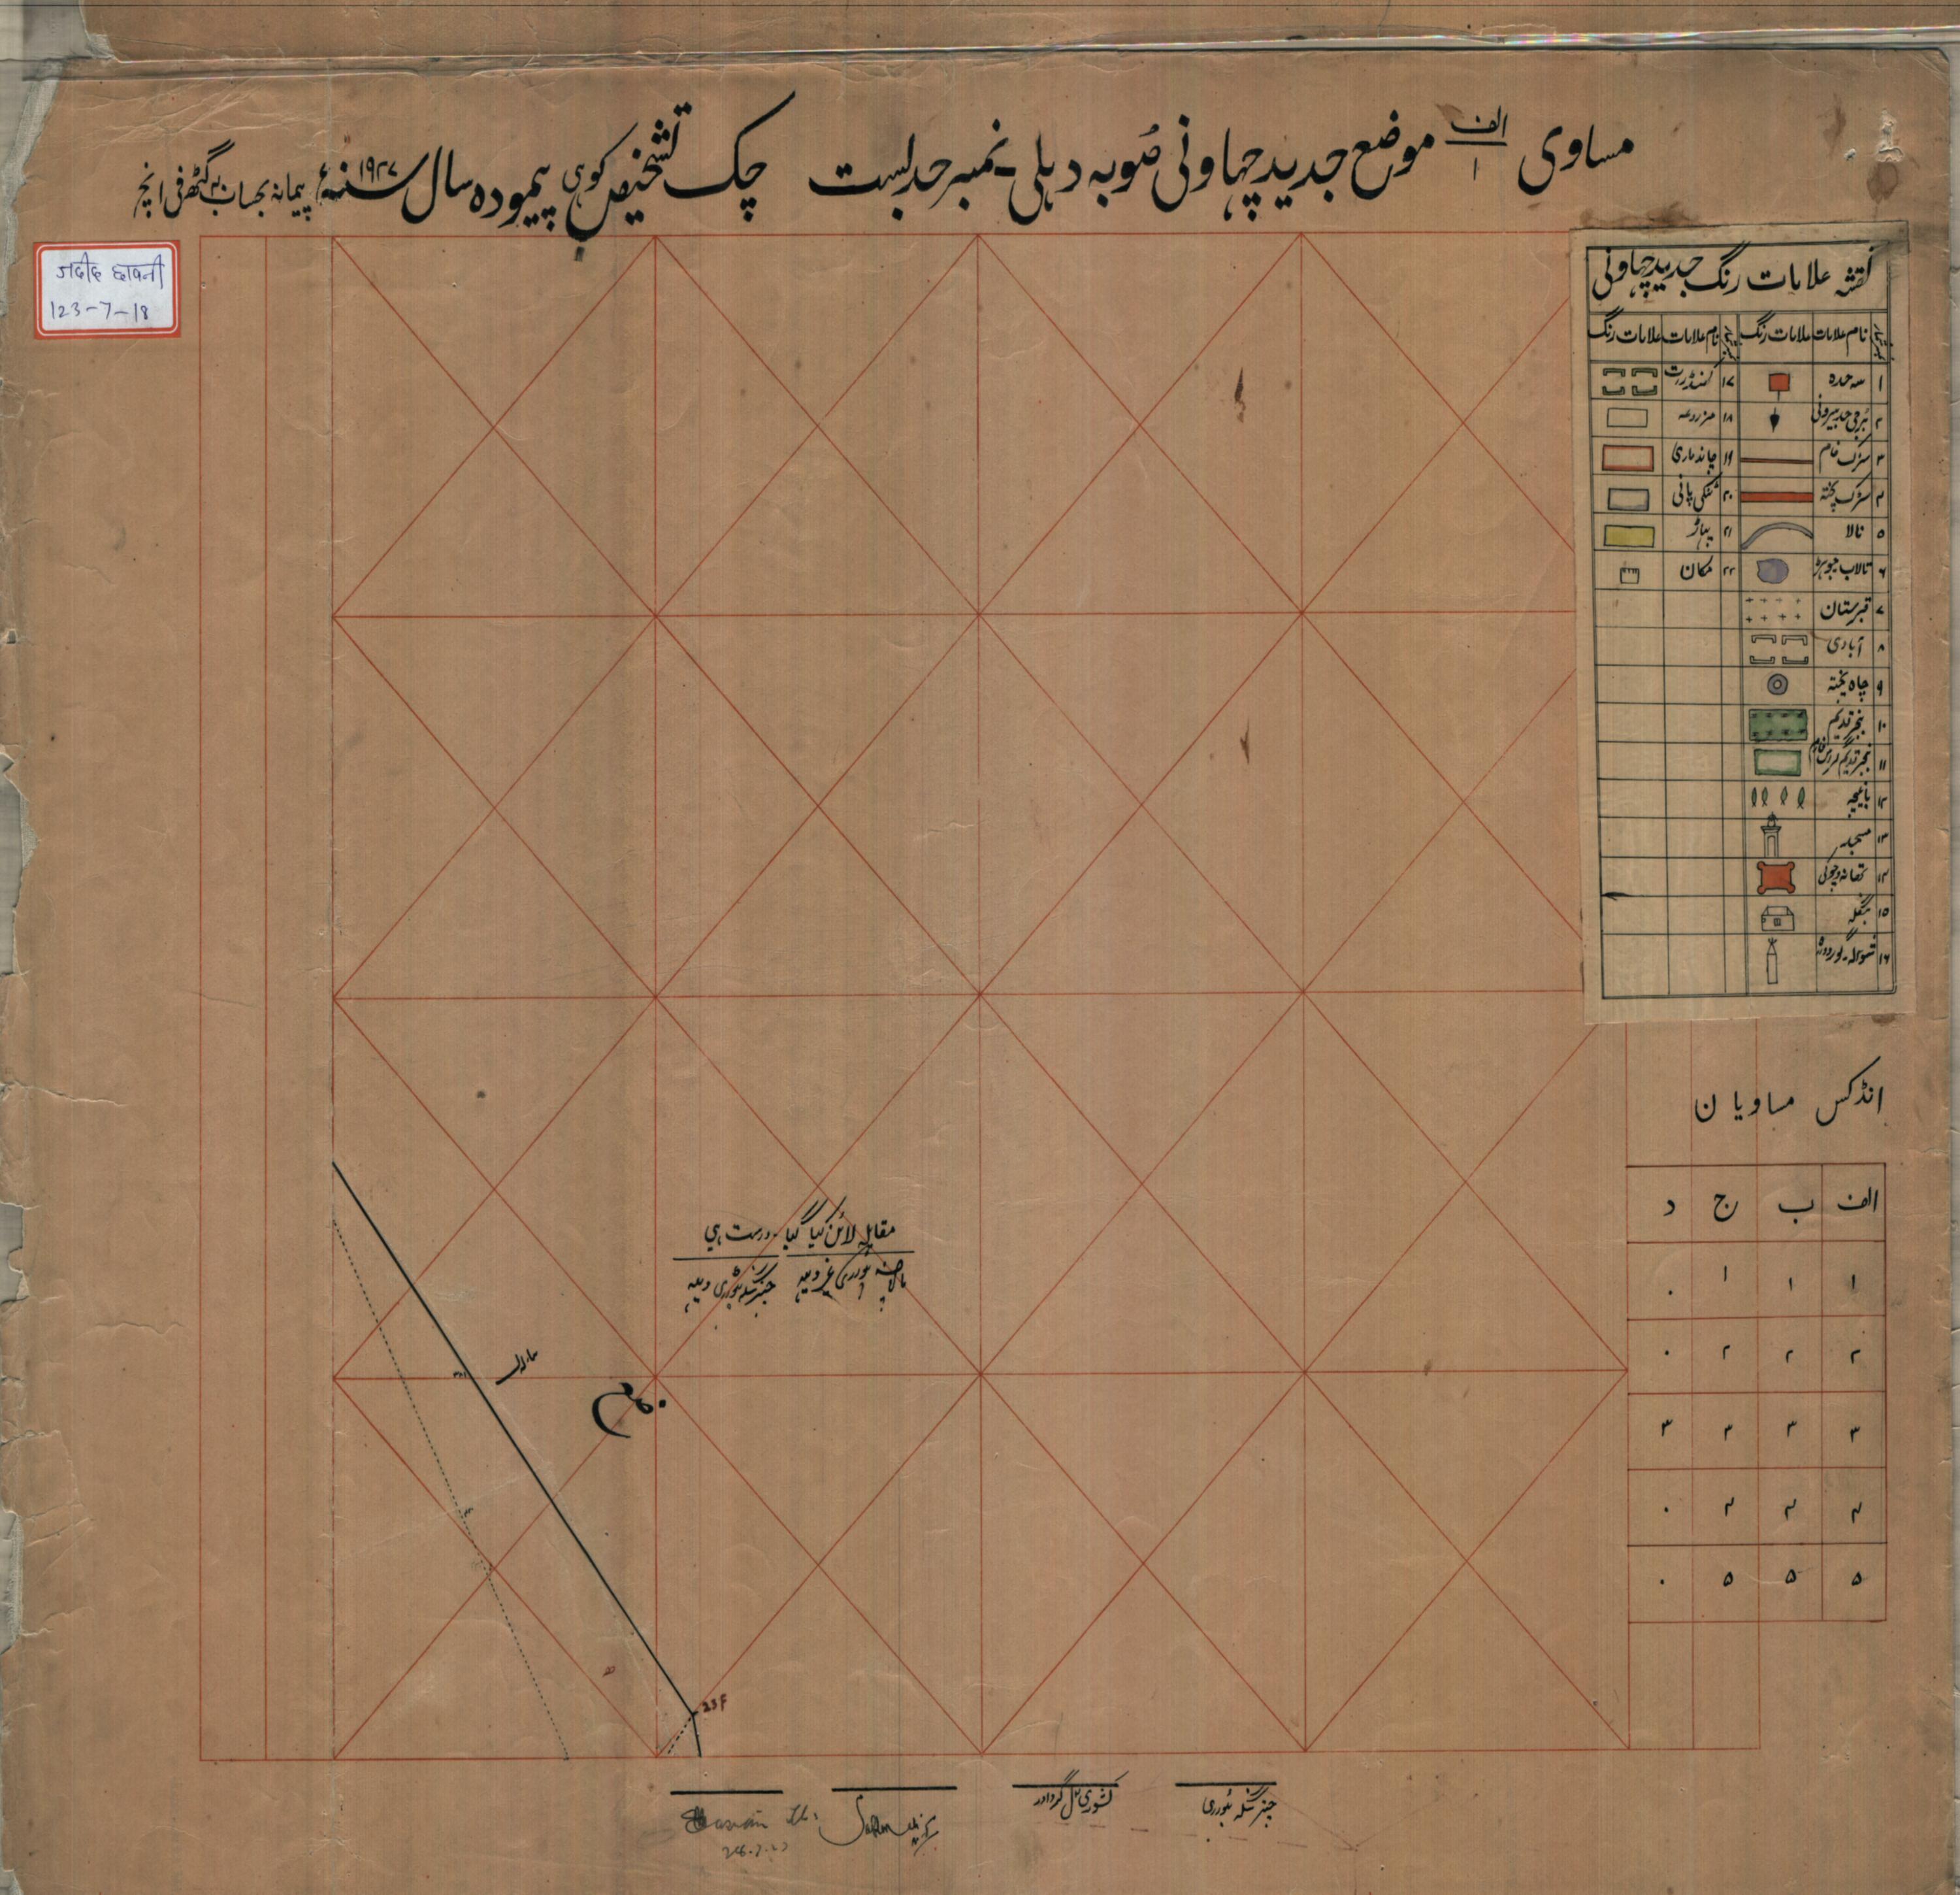 مساوی الف/۱ موضع جدید چہاونی صوبہ دہلی۔ نمبر حدبست چک تشخیص کوہی پیمودہ سال سنہ ۱۹۲۷ء پیمانہ بحساب ۴۰ گٹھ فی انچ
जदीद छावनी
123-7-18
نقشہ علامات رنگ جدید چہاونی
نام علامات علامات رنگ نام علامات علامات رنگ
۱ سہ حدہ ۱۷
۲ برجی حد بیرونی ۱۸ مزروعہ
۳ سڑک خام ۱۹ چاندماری
۴ سڑک پختہ ۲۰ ٹنکی پانی
۵ نالا ۲۱ پہاڑ
۶ تالاب جوہڑ ۲۲ مکان
۷ قبرستان
۸ آبادی
۹ چاہ پختہ
۱۰ بنجر قدیم
۱۱ بنجر قدیم
۱۲ باغیچہ
۱۳ مسجد
۱۴ تھانہ و چوکی
۱۵ بنگلہ
۱۶ شوالہ۔
انڈکس مساویان
الف ب ج د
۱ ۱ ۱ ۰
۲ ۲ ۲ ۰
۳ ۳ ۳ ۳
۴ ۴ ۴ ۰
۵ ۵ ۵ ۰
مقابلہ لائن کیا گیا۔ درست ہے
23F
کشوری لال گرداور